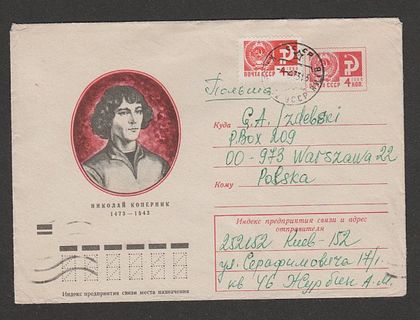 ПОЧТА СССР
4
ПОЧТА СССР
4 КОП.
Польша
Куда
G.A. Izdebski
P.Box 209
00-973 Warszawa 22
Кому
Polska
НИКОЛАЙ КОПЕРНИК
1473—1543
Индекс предприятия связи и адрес
отправителя
252152 Киев-152
ул. Серафимовича 17/1
кв 46 Журбин А.М.
Индекс предприятия связи места назначения